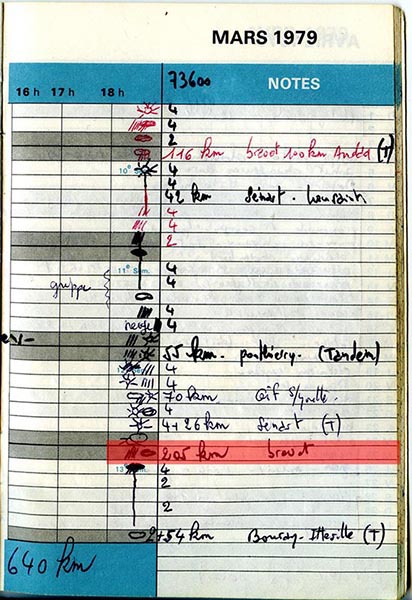 MARS 1979
16 h 17 h 18 h 73600 NOTES
4
4
2
116 km brevet 100 km André (T)
10e Sem. 4
4
42 km Sénart -
4
4
2
11e Sem. 4
4
grippe
4
neige 4
55 km - ponthierry - (Tandem)
4
4
70 km Gif s/yvette
4
4+26 km Sénart (T)
205 km brevet
13 4
2
2
2+54 km Bouray - Itteville (T)
640 km